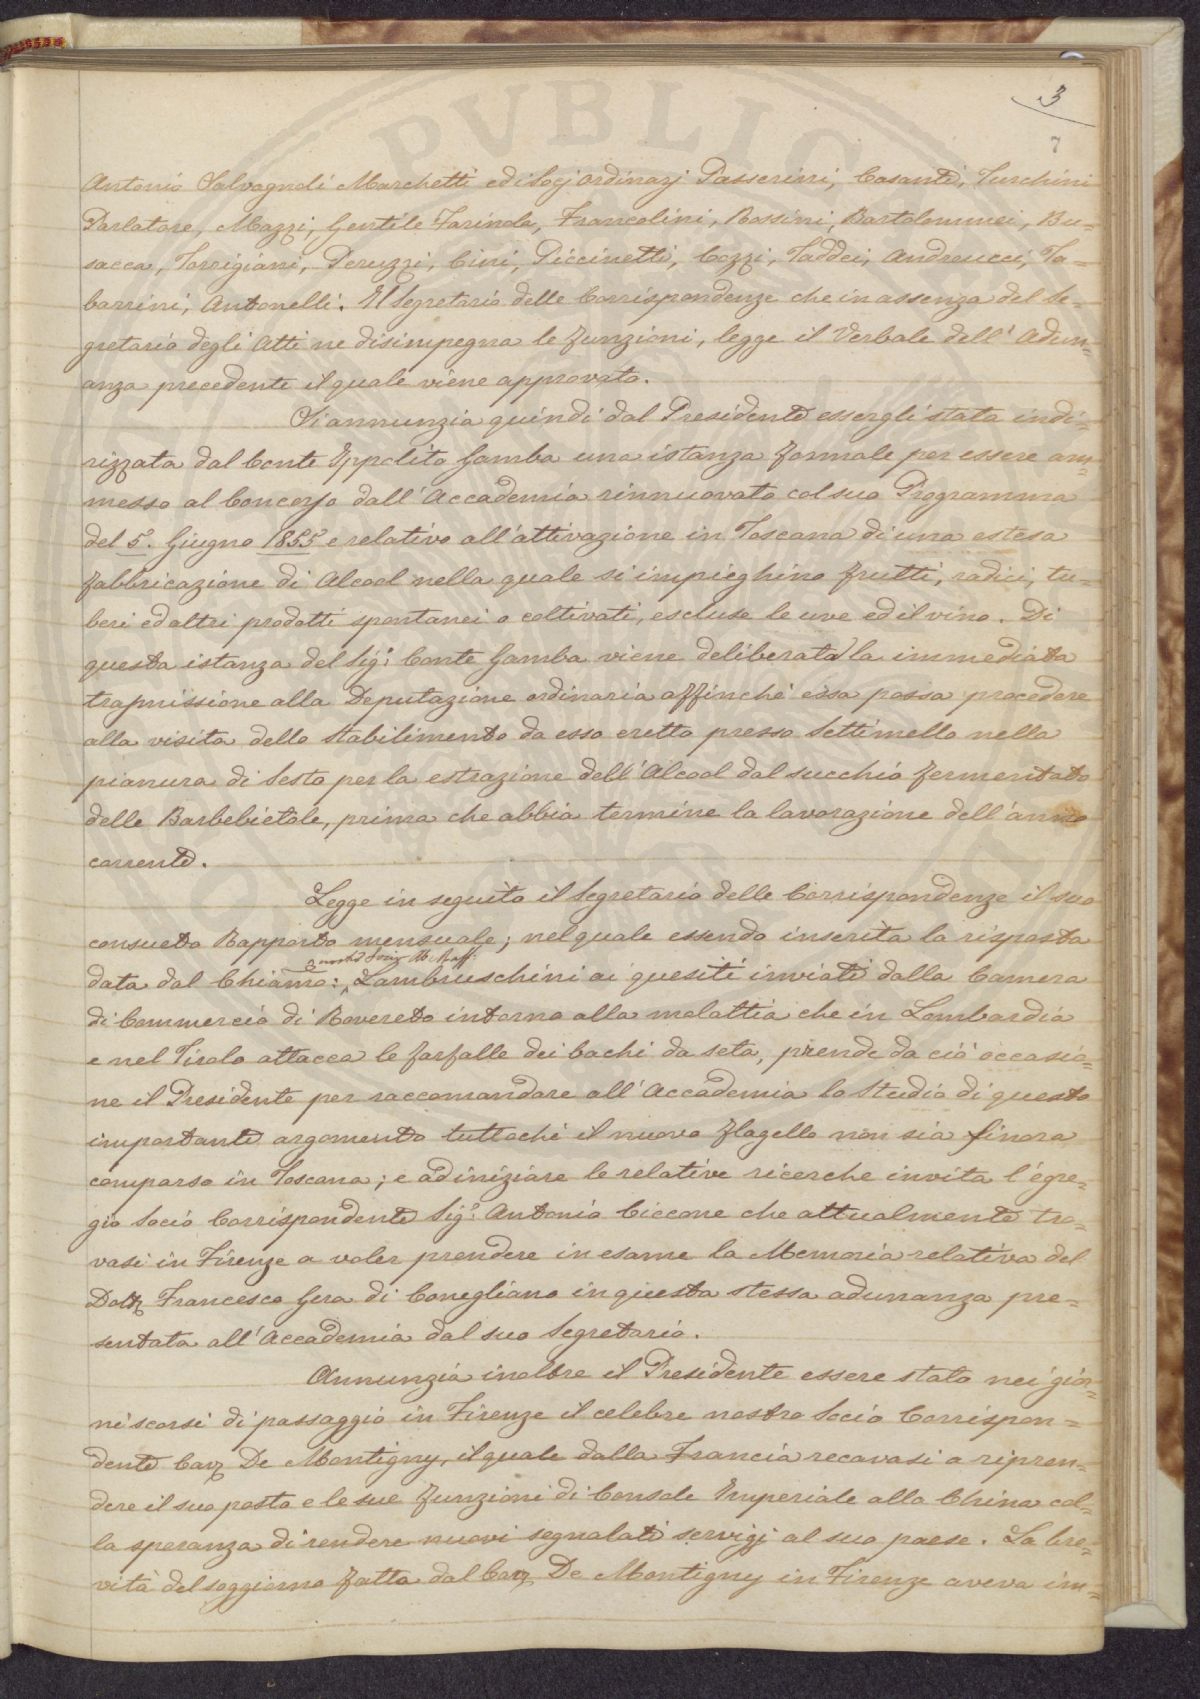 3
7
PVBLIC
Antonio Salvagnoli Marchetti ed i Socj ordinarj Passerini, Casanti, Turchini
Parlatore, Mazzi, Gentile Farinola, Francolini, Rossini, Bartolommei, Bu=
sacca, Torrigiani, Peruzzi, Cini, Piccinetti, Cozzi, Taddei, Andreucci, Ta=
barrini, Antonelli. Il Segretario delle Corrispondenze che in assenza del Se=
gretario degli Atti ne disimpegna le funzioni, legge il Verbale dell' Adun=
anza precedente il quale viene approvato.
Si annunzia quindi dal Presidente essergli stata indi=
rizzata dal Conte Ippolito Gamba una istanza formale per essere am=
messo al Concorso dall' Accademia rinnuovato col suo Programma
del 5. Giugno 1855 e relativo all' attivazione in Toscana di una estesa
fabbricazione di Alcool nella quale si impieghino frutti, radici, tu=
beri ed altri prodotti spontanei o coltivati, escluse le uve ed il vino. Di
questa istanza del Sig: Conte Gamba viene deliberata la immediata
trasmissione alla Deputazione ordinaria affinchè essa possa procedere
alla visita dello Stabilimento da esso eretto presso Settimello nella
pianura di Sesto per la estrazione dell' Alcool dal succhio fermentato
delle Barbebietole, prima che abbia termine la lavorazione dell' anno
corrente.
Legge in seguito il Segretario delle Corrispondenze il suo
consueto Rapporto mensuale; nel quale essendo inserita la risposta
data dal Chiarmo: nostro Socio Raff: Lambruschini ai quesiti inviati dalla Camera
di Commercio di Rovereto intorno alla malattia che in Lombardia
e nel Tirolo attacca le farfalle dei bachi da seta, prende da ciò occasio=
ne il Presidente per raccomandare all' Accademia lo studio di questo
importante argomento tuttochè il nuovo flagello non sia finora
comparso in Toscana; e ad iniziare le relative ricerche invita l' egre=
gio Socio Corrispondente Sig: Antonio Ciccone che attualmente tro=
vasi in Firenze a voler prendere in esame la Memoria relativa del
Dott. Francesco Gera di Conegliano in questa stessa adunanza pre=
sentata all' Accademia dal suo Segretario.
Annunzia inoltre il Presidente essere stato nei gior=
ni scorsi di passaggio in Firenze il celebre nostro Socio Corrispon=
dente Cav. De Montigny, il quale dalla Francia recavasi a ripren=
dere il suo posto e le sue funzioni di Console Imperiale alla China col=
la speranza di rendere nuovi segnalati servigj al suo paese. La bre=
vità del soggiorno fatto dal Cav. De Montigny in Firenze aveva im=